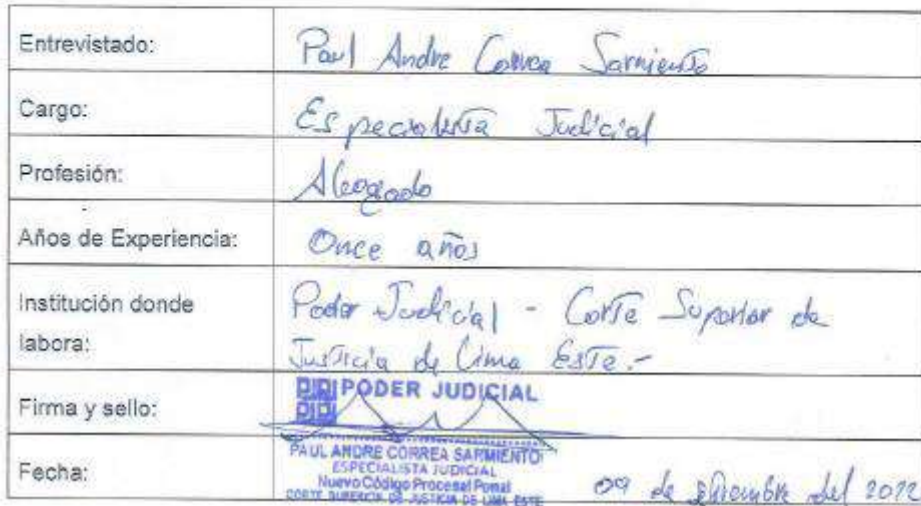 Entrevistado: Paul Andre Correa Sarmiento
Cargo: Especialista Judicial
Profesión: Abogado
Años de Experiencia: Once años
Institución donde Poder Judicial - Corte Superior de
labora: Justicia de Lima Este.-
PODER JUDICIAL
Firma y sello:
PAUL ANDRE CORREA SARMIENTO
ESPECIALISTA JUDICIAL
Nuevo Código Procesal Penal
CORTE SUPERIOR DE JUSTICIA DE LIMA ESTE
Fecha: 09 de diciembre del 2022